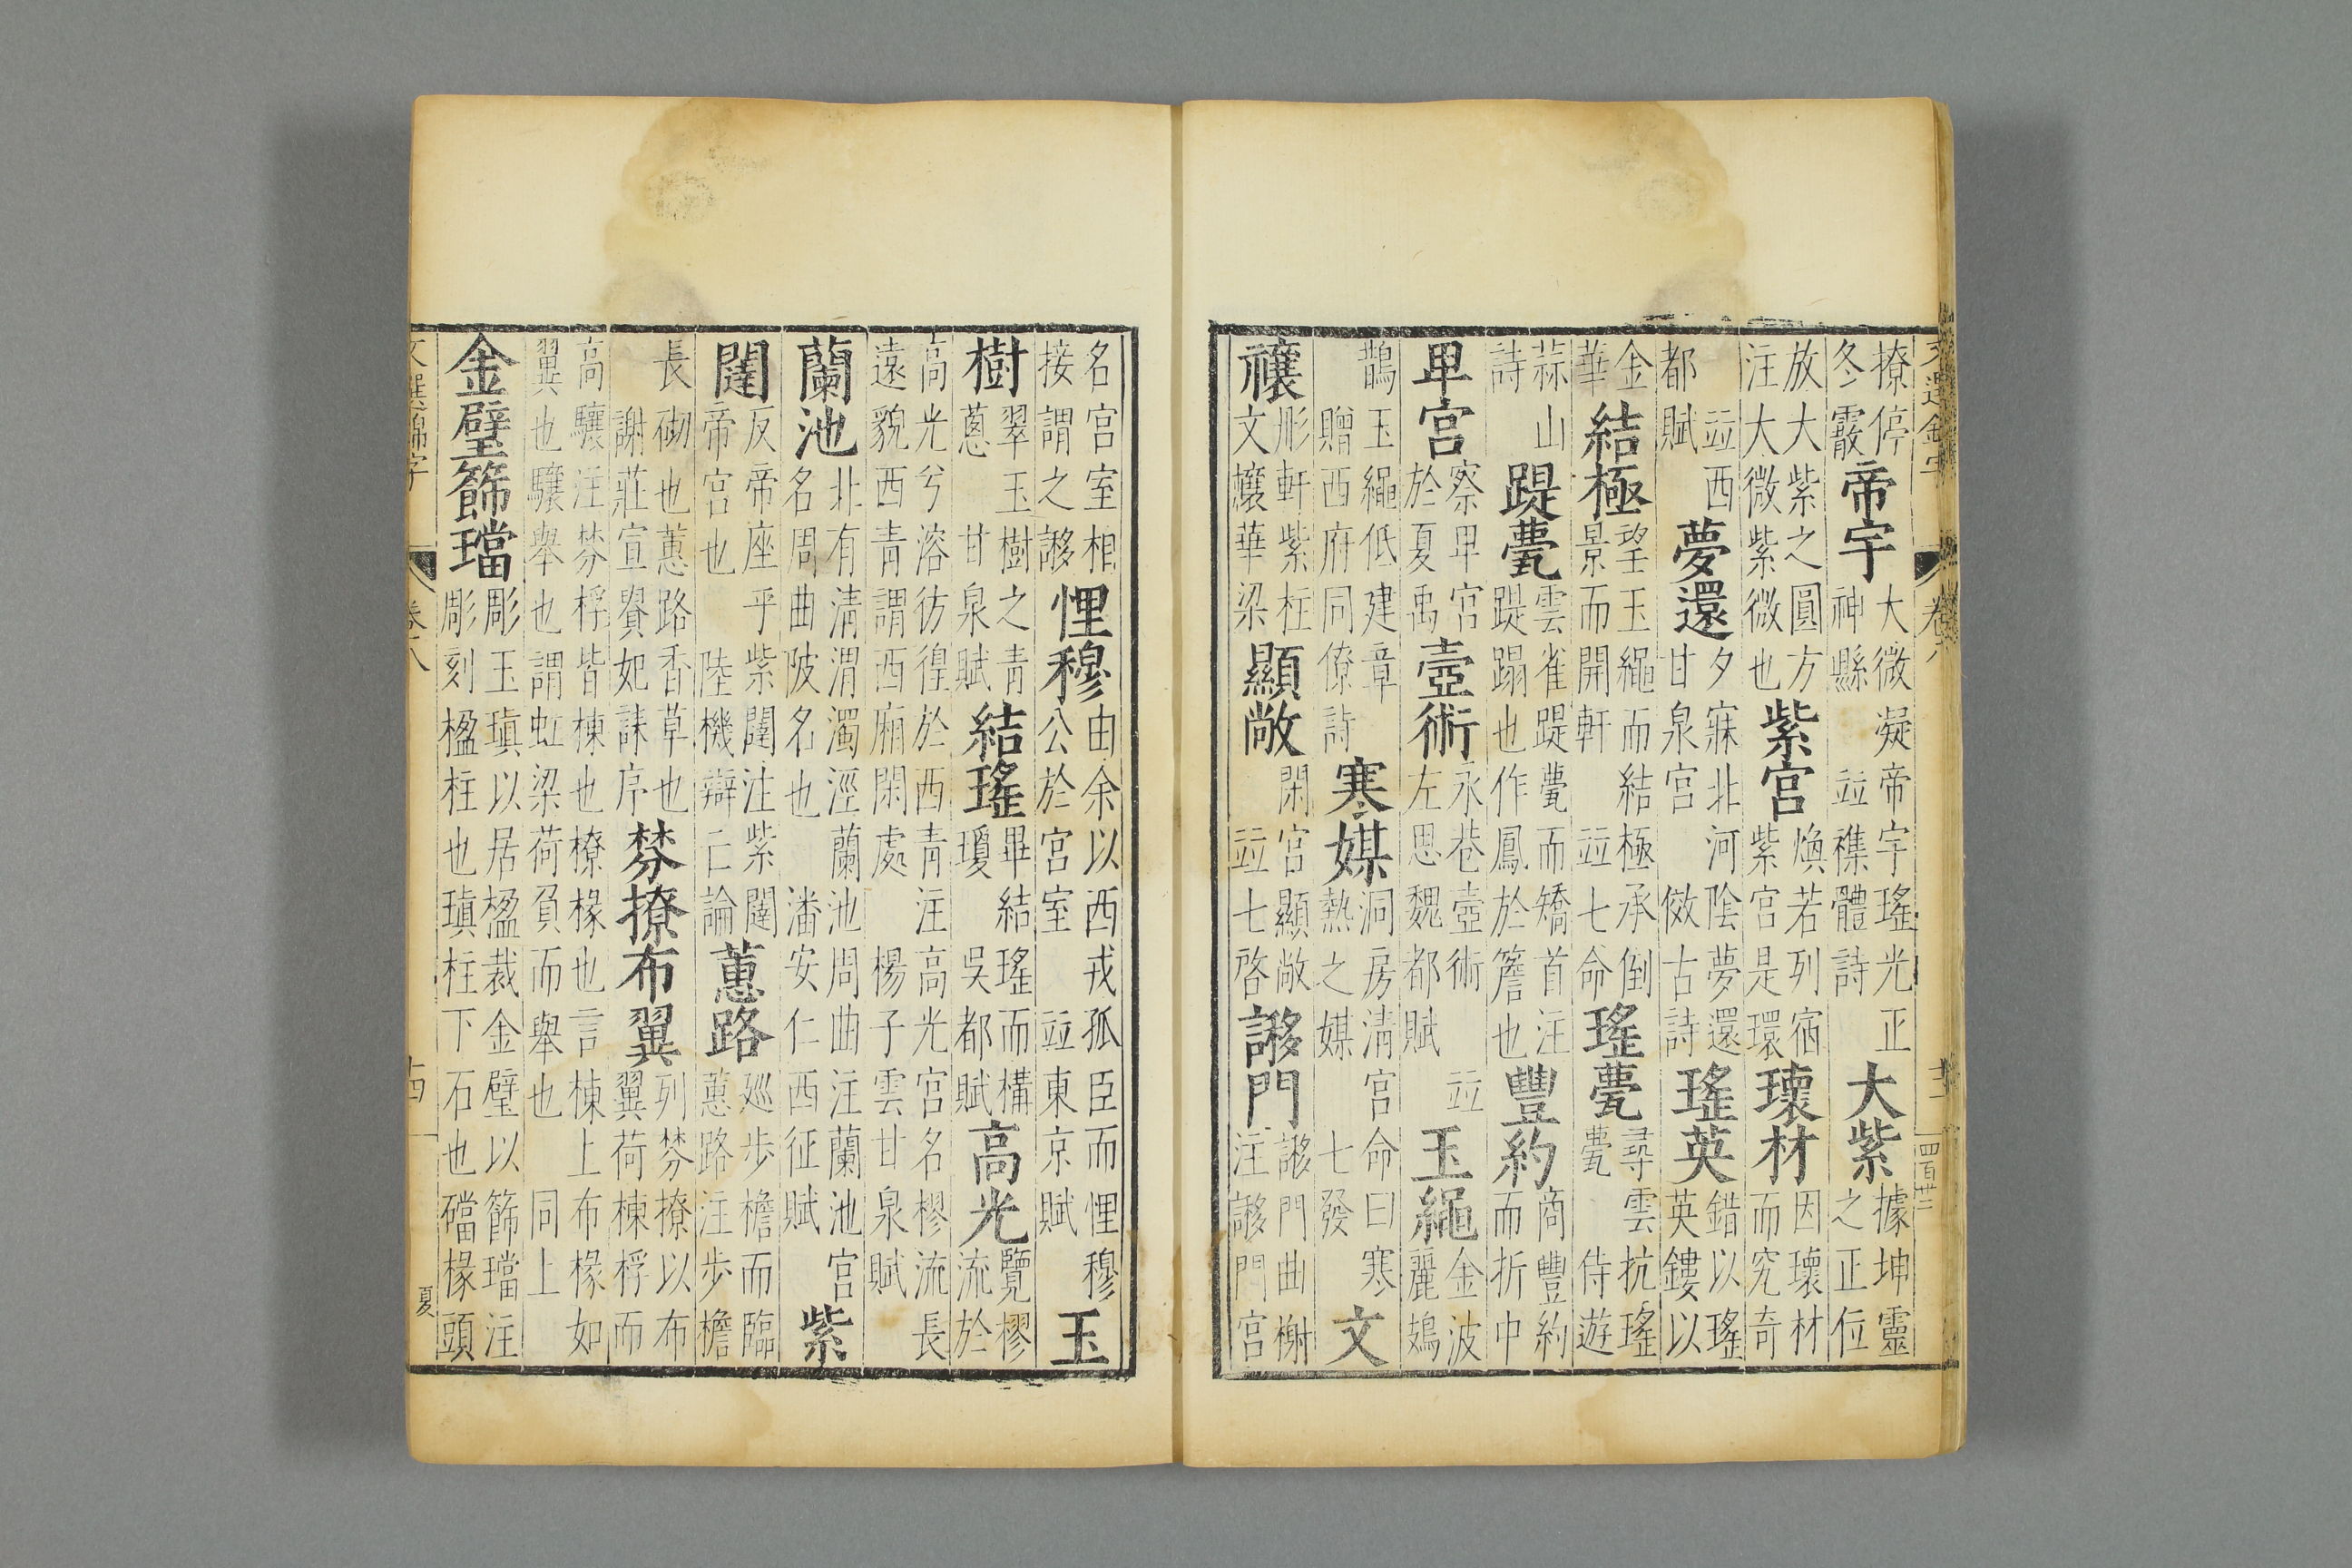 文選錦字 卷八 四百卅二
撩停冬霰帝宇大微凝帝宇瑤光正神縣並襍體詩大紫據坤靈之正位
放大紫之圓方注大微紫微也紫宮煥若列宿紫宮是環瓌材因瓌材而究奇
並西都賦夢還夕寐北河陰夢還甘泉宮傚古詩瑤英錯以瑤英鏤以
金華結極望玉繩而結極承倒景而開軒並七命瑤甍尋雲抗瑤甍侍遊
蒜山詩踶甍雲雀踶甍而矯首注踶蹋也作鳳於簷也豐約商豐約而折中
卑宮察卑宮於夏禹壼術永巷壼術並左思魏都賦玉繩金波麗鳷
鵲玉繩低建章贈西府同僚詩寒媒洞房清宮命曰寒熱之媒七發文
彤軒紫柱文華梁顯敞閑宮顯敞並七啓謻門謻門曲榭注謻門宮
名宮室相接謂之謻悝穆由余以西戎孤臣而悝穆公於宮室並東京賦玉
樹翠玉樹之青蔥甘泉賦結瑤畢結瑤而構瓊吳都賦高光覽樛流於
高光兮溶彷徨於西青注高光宮名樛流長遠貌西青謂西廂閑處楊子雲甘泉賦
蘭池北有清渭濁涇蘭池周曲注蘭池宮名周曲陂名也潘安仁西征賦紫
闥反帝座乎紫闥注紫闥帝宮也陸機辯亡論蕙路巡步檐而臨蕙路注步檐
長砌也蕙路香草也謝莊宣貴妃誄序棼撩布翼列棼撩以布翼荷棟桴而
高驤注棼桴皆棟也橑椽也言棟上布椽如翼也驤舉也謂虹梁荷負而舉也同上
金璧飾璫彫玉瑱以居楹裁金璧以飾璫注彫刻楹柱也瑱柱下石也礑椽頭
文選錦字 卷八 十四 夏